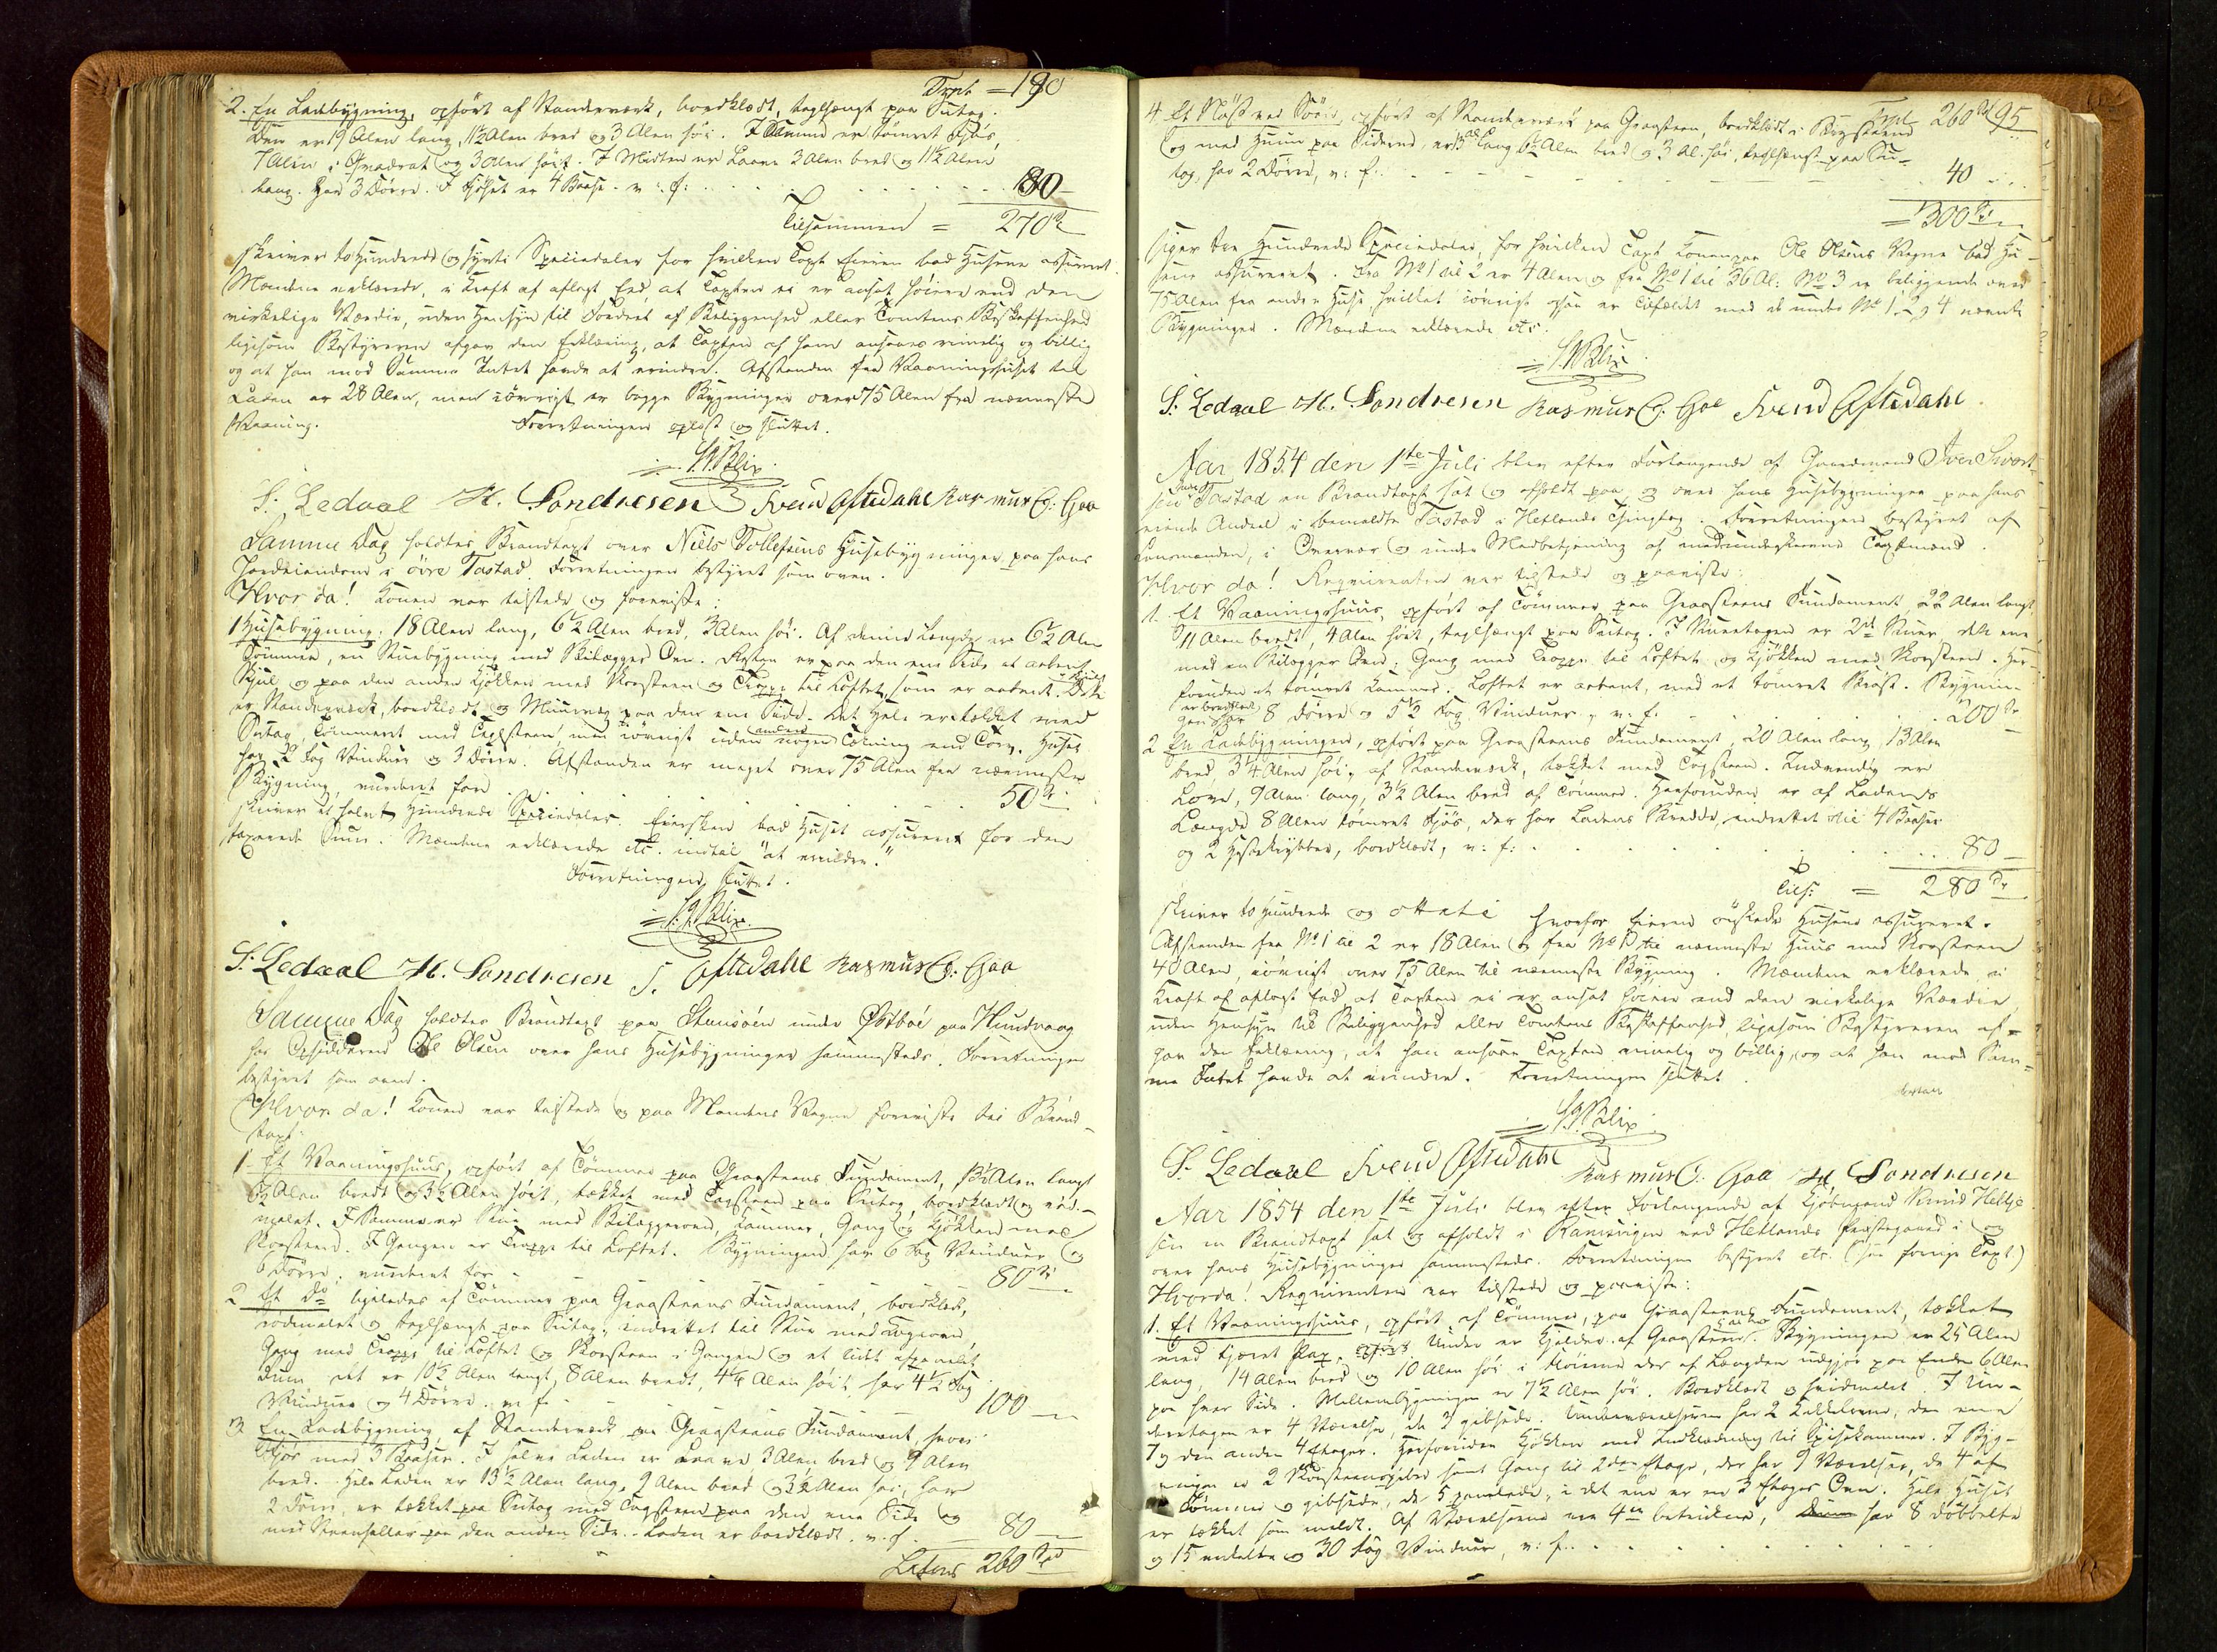 Trpt = 190
2. En Ladebygning, opført af Standerværk, bordklædt, teglhængt paa Sutag.
Den er 19 Alen lang, 11½ Alen bred og 3 Alen höi. I Samme er tömret Fjös,
7 Alen i Qvadrat og 3 Alen höit. I Midten er Laave 3 Alen bred og 11½ Alen
lang. Har 3 Dörre. I Fjöset er 4 Baase. v: f: 80 –
Tilsammen = 270 Sp
skriver to Hundrede og sytti Speciedaler for hvilken Taxt Eieren bad Husene assureret.
Mændene erklærede, i Kraft af aflagt Eed, at Taxten ei er ansat höiere end den
virkelige Værdie, uden Hensyn til Fordeel af Beliggenhed eller Tomtens Beskaffenhed
ligesom Bestyreren afgav den Erklæring, at Taxten af ham ansaaes rimelig og billig
og at han mod Samme Intet havde at erindre. Afstanden fra Vaaningshuset til
Laden er 28 Alen, men iövrigt er begge Bygninger over 75 Alen fra nærmeste
Vaaning. Forretningen oplæst og sluttet.
Blix
S. Ledaal H. Sondresen Svend Aftedahl Rasmus E. Goa
Samme Dag holdtes Brandtaxt over Niels Tollefsens Husebygninger paa hans
Jordeiendom i övre Tastad. Forretningen bestyret som oven.
Hvor da! Konen var tilstede og foreviste:
1 Husebygning. 18 Alen lang, 6½ Alen bred, 3 Alen höi. Af denne Længde er 6½ Alen
Tömmer, en Stuebygning med Bilægger Ovn. Resten er paa den ene Side et aabent
Skjul og paa den anden Kjökken med Skorsteen og Trappe til Loftet, som er aabent.
er Standerværk, bordklædt og Muurvæg paa den ene Side. Det Hele er tækket med
Sutag, med Teglsteen, men iövrigt uden nogen anden Tækning end Törv. Huset
har 2 Fag Vinduer og 3 Dörre. Afstanden er meget över 75 Alen fra nærmeste
Bygning, vurderet for 50 Sp
skriver et halvt Hundrede Speciedaler. Eiersken bad Huset assureret for den
taxerede Sum. Mændene erklærede etc. indtil "at erindre."
Forretningen sluttet.
Blix
S. Ledaal H. Sondresen S. Aftedahl Rasmus E. Goa
Samme Dag holdtes Brandtaxt paa Steinsöen under Östbö paa Hundvaag
hos Opsidderen Ole Olsen over hans Husebygninger sammesteds. Forretningen
bestyret som oven.
Hvor da! Konen var tilstede og paa Mandens Vegne foreviste til Brand-
taxt.
1 Et Vaaningshuus, opfört af Tömmer paa Graasteens Fundament, 13½ Alen langt
Alen bredt og 3½ Alen höit, tækket med Tagsteen paa Sutag, bordklædt og röd-
malet. I Samme er Stue med Bilæggerovn, Kammer, Gang og Kjökken med
Skorsteen. I Gangen er Trappe til Loftet. Bygningen har 6 Fag Vinduer og
6 Dörre, vurderet for 80 Sp
2 Et Do ligeledes af Tömmer paa Graasteens Fundament, bordklædt,
rödmalet og teglhængt paa Sutag, indrettet til Stue med
Gang med Trappe til Loftet og Skorsteen i Gangen og et lidet
Rum. Det er 10½ Alen langt, 8 Alen bredt, 4¼ Alen höit, har 4½ Fag
Vinduer og 4 Dörre. v: f. 100 –
3 En Ladebygning af Standerværk paa Graasteens Fundament, hvori
Fjös med 3 Baaser. I selve Laden er Laave 3 Alen bred og 9 Alen
bred. Hele Laden er 13½ Alen lang, 9 Alen bred og 3½ Alen höi, har
2 Dörre, er tækket paa Sutag med Tagsteen paa den ene Side og
med Steenheller paa den anden Side. Laden er bordklædt. v. f. 80 –
Latus 260 Spd
Trpt 260 Sp 95
4. Et Nöst ved Söen, opfört af Standerværk paa Graasteen, bordklædt
og med Huun paa Siderne, er 13 Al. lang 6 Alen bred og 3 Al. höi, teglhængt paa Su-
tag, har 2 Dörre, v: f: 40
= 300 Sp
siger tre Hundrede Speciedaler, for hvilken Taxt Konen paa Ole Olsens Vegne bad Hu-
sene assureret. Fra No 1 til 2 er 4 Alen og fra No 1 til 36 Al: No 3 er beliggende over
75 Alen fra andre Huse, hvilket iövrigt ogsaa er Tilfældet med de under No 1, 2 og 4 nævnte
Bygninger. Mændene erklærede etc.
Blix
S. Ledaal H. Sondresen Rasmus E. Goe Svend Aftedahl
Aar 1854 den 1te Juli blev efter Forlangende af Gaardmand Iver Siverts-
sen Tastad en Brandtaxt sat og afholdt paa og over hans Husebygninger paa hans
eiende Andeel i bemeldte Tastad i Hetlands Thinglag. Forretningen bestyret af
Lensmanden, i Overvær og under Medbetjening af medundertegnede Taxtmænd.
Hvor da! Reqvirenten var tilstede og paaviste:
1. Et Vaaningshuus, opfört af Tömmer paa Graasteens Fundament, 22 Alen langt
11 Alen bredt, 4 Alen höit, teglhængt paa Sutag. I Stueetagen er 2de Stuer, den ene
med en Bilægger Ovn; Gang med Trappe til Loftet og Kjökken med Skorsteen. Her-
foruden et tömret Kammer. Loftet er aabent, med et tömret Bröst. Bygnin-
gen er bordklædt har 8 Dörre og 5½ Fag Vinduer. v: f. 200 Sp
2 En Ladebygningen, opfört paa Graasteens Fundament, 20 Alen lang, 13 Alen
bred, 3¼ Alen höi, af Standerværk, tækket med Tagsteen. Indvendig er
Love, 9 Alen lang, 3½ Alen bred af Tömmer. Herforuden er af Ladens
Længde 8 Alen tömret Fjös, der har Ladens Bredde, indrettet til 4 Baaser
og 2 Hestekrybber, bordklædt, v: f: 80 –
Tils: = 280 Sp
skriver to Hundrede og ottati hvorfor Eieren önskede Husene assureret.
Afstanden fra No 1 til 2 er 18 Alen og fra No 1 til nærmeste Huus med Skorsteen
40 Alen, iövrigt over 75 Alen til nærmeste Bygning. Mændene erklærede, i
Kraft af aflagt Eed, at Taxten ei er ansat höiere end den virkelige Værdie,
uden Hensyn til Beliggenhed eller Tomtens Beskaffenhed, ligesom Bestyreren af-
gav den Erklæring, at han ansaae Taxten rimelig og billig, og at han mod Sam-
me Intet havde at erindre. Forretningen sluttet.
Blix
S. Ledaal Svend Aftedahl Rasmus E. Goa H. Sondresen
Aar 1854 den 1te Juli blev efter Forlangende af Kjöbmand Knud Helliesen
sen en Brandtaxt sat og afholdt i Ramsvigen ved Hetlands Præstegaard i og
over hans Husebygninger sammesteds. Forretningen bestyret etc. (see forrige Taxt)
Hvorda! Reqvirenten var tilstede og paaviste:
1. Et Vaaningshuus, opfört af Tömmer, paa Graasteens Fundament, tækket
med tjæret Pap. Under er Kjelder af Graasteen. Bygningen er 25 Alen
lang, 14 Alen bred og 10 Alen höi i Flöiene der af Længden udgjör paa Enden 6 Alen
paa hver Side. Mellembygningen er 7½ Alen höi. Bordklædt og hvidmalet. I Un-
deretagen er 4 Værelser, de 3 gibsede. Underværelserne har 2 Kakkelovne, den ene
7 og den anden 4 Etager. Herforuden Kjökken med Indklædning til Spisekammer. I Byg-
ningen er 2 Skorsteenspiber samt Gang til 2den Etage, der har 9 Værelser, de 4 af
Tömmer og gibsede, de 5 panelede, i det ene er en 3 Etages Ovn. Hele Huset
er tækket som meldt. Af Værelserne ere 4re betrukne, har 8 dobbelte
og 15 enkelte og 30 Fag Vinduer, v: f.